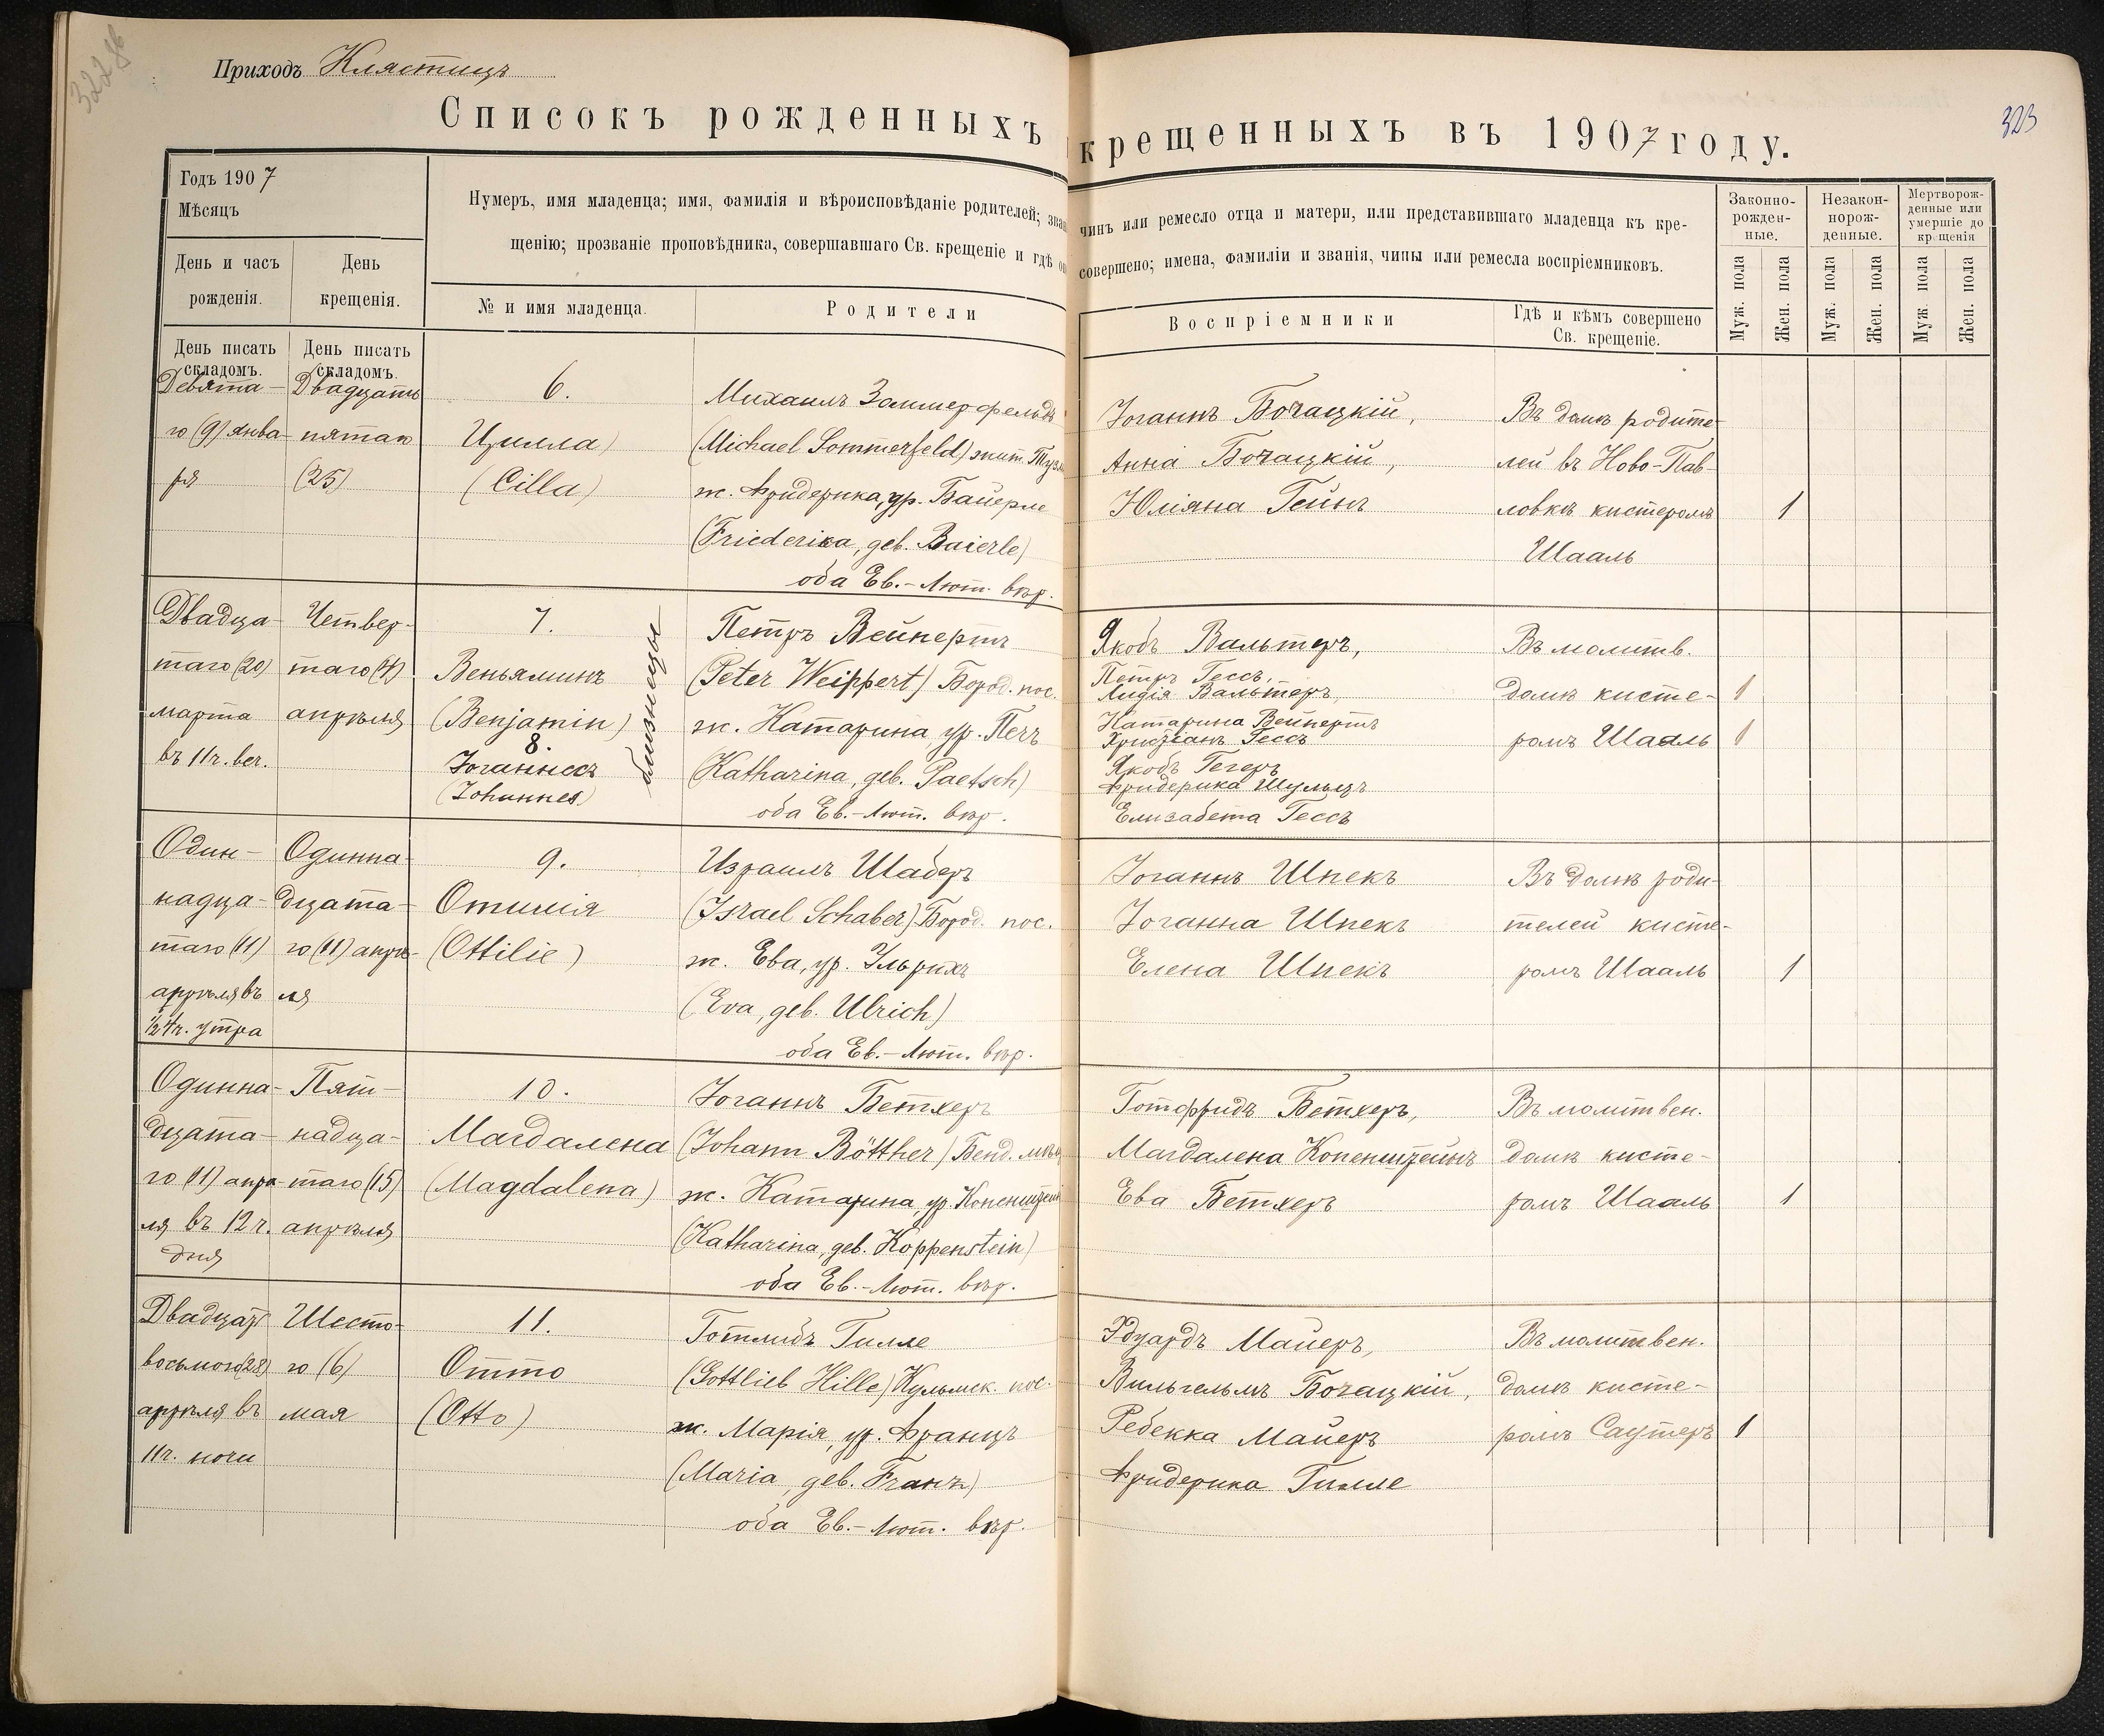 322 об
Приходъ Клястицъ
323
Списокъ рожденныхъ крещенныхъ въ 1907 году.
Годъ 1907
Мѣсяцъ
День и часъ рожденія.
День крещенія.
Нумеръ, имя младенца; имя, фамилія и вѣроисповѣданіе родителей; зва чинъ или ремесло отца и матери, или представившаго младенца къ кре-
щенію; прозваніе проповѣдника, совершавшаго Св. крещеніе и гдѣ о совершено; имена, фамиліи и званія, чины или ремесла воспріемниковъ.
№ и имя младенца.
Родители
Воспріемники
Гдѣ и кѣмъ совершено
Св. крещеніе.
Законно-
рожден-
ные.
Незакон-
норож-
денные.
Мертворож-
денные или
умершіе до
крщенія
Муж. пола
Жен. пола
Муж. пола
Жен. пола
Муж. пола
Жен. пола
День писать
складомъ.
День писать
складомъ.
Девята-
го (9) янва-
ря
Двадцать
пятаго
(25)
6.
Цилла)
(Cilla)
Михаилъ Заммерфельдъ
(Michael Sommerfeld) жит. Тузл
ж. Фридерика, ур. Байерле
(Friederika, geb. Baierle)
оба Ев.-Лют. вѣр.
Іоганнъ Бочацкій,
Анна Бочацкій,
Юліяна Гейнъ
Въ домѣ родите-
лей въ Ново-Пав-
ловкѣ кистеромъ
Шааль
1
Двадца-
таго (20)
марта
въ 11 ч. веч.
Четвер-
таго (4)
апрѣля
7.
Веньяминъ
(Benjamin)
8.
Іоганнесъ
(Johannes)
близнецы
Петръ Вейпертъ
(Peter Weippert) Бород. пос.
ж. Катарина, ур. Печъ
(Katharina, geb. Paetsch)
оба Ев.-Лют. вѣр.
Якобъ Вальтеръ,
Петръ Гессъ,
Лидія Вальтеръ,
Катарина Вейпертъ
Христіанъ Гессъ
Якобъ Гегеръ
Фридерика Шульцъ
Елизабета Гессъ
Въ молитв.
домѣ кисте-
ромъ Шааль
1
1
Один-
надца-
таго (11)
апрѣля въ
½ 4 ч. утра
Одинна-
дцата-
го (11) апрѣ-
ля
9.
Отилія
(Ottilie)
Израилъ Шаберъ
(Israel Schaber) Бород. пос.
ж. Ева, ур. Ульрихъ
(Eva, geb. Ulrich)
оба Ев.-Лют. вѣр.
Іоганнъ Шпекъ
Іоганна Шпекъ
Елена Шпекъ
Въ домѣ роди-
телей кисте-
ромъ Шааль
1
Одинна-
дцата-
го (11) апрѣ-
ля въ 12 ч.
дня
Пят-
надца-
таго (15)
апрѣля
10.
Магдалена
(Magdalena)
Іоганнъ Бетхеръ
(Johann Bötther) Бенд. мѣщ
ж. Катарина, ур. Копенштейн
(Katharina, geb. Koppenstein)
оба Ев.-Лют. вѣр.
Готфридъ Бетхеръ,
Магдалена Копенштейнъ
Ева Бетхеръ
Въ молитвен.
домѣ кисте-
ромъ Шааль
1
Двадцать
восьмого (28)
апрѣля въ
11 ч. ночи
Шесто-
го (6)
мая
11.
Отто
(Otto)
Готлибъ Гилле
(Gottlieb Hille) Кульмск. пос.
ж. Марія, ур. Францъ
(Maria, geb. Franz)
оба Ев.-Лют. вѣр.
Эдуардъ Майеръ,
Вильгельмъ Бочацкій,
Ребекка Майеръ
Фридерика Гилле
Въ молитвен.
домѣ кисте-
ромъ Саутеръ
1